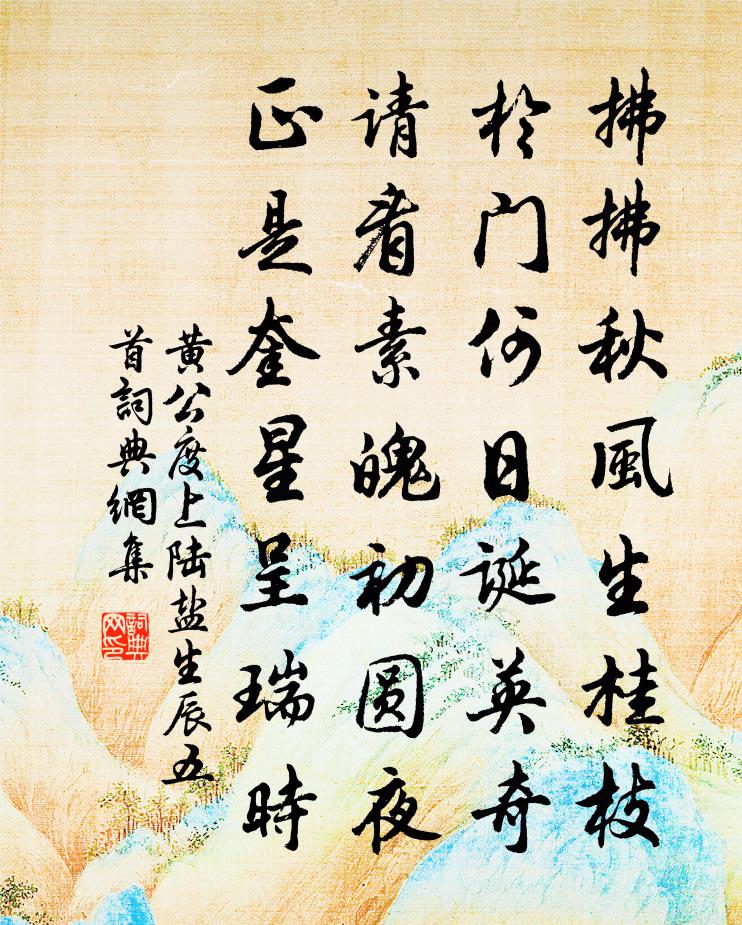 拂拂秋風生桂枝
於门何日诞英奇
请看素魄初圆夜
正是奎星呈瑞時
黄公度上陆盐生辰五
首詞典網集
詞典
网印